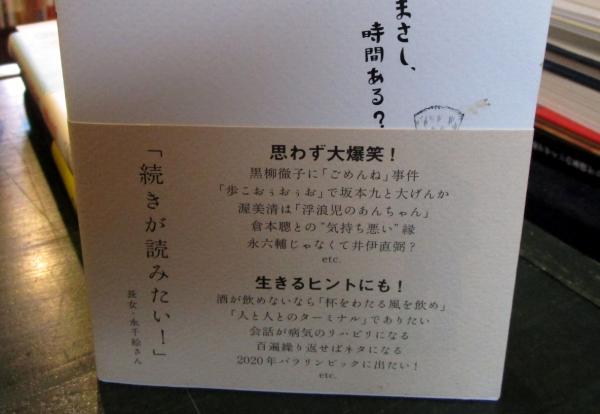 まさし、
時間ある？
「続きが読みたい！」
長女・永千絵さん
思わず大爆笑！
黒柳徹子に「ごめんね」事件
「歩こおぅおぅお」で坂本九と大げんか
渥美清は「浮浪児のあんちゃん」
倉本聰との"気持ち悪い"縁
永六輔じゃなくて井伊直弼？
etc.
生きるヒントにも！
酒が飲めないなら「杯をわたる風を飲め」
「人と人とのターミナル」でありたい
会話が病気のリハビリになる
百遍繰り返せばネタになる
2020年パラリンピックに出たい！
etc.